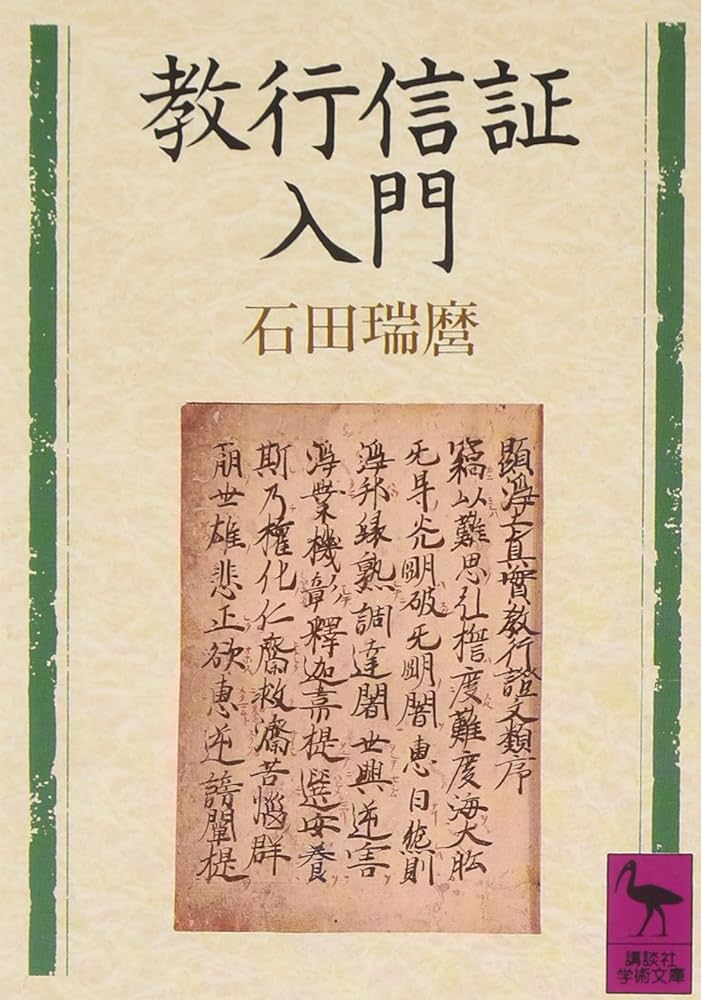 教行信証
入門
石田瑞麿
顯淨土真實教行證文類序
竊以難思弘誓度難度海大舩
无㝵光明破无明闇恵日然則
淨邦縁熟調達闍世興逆害
淨業機彰釋迦韋提選安養
斯乃權化仁齊救濟苦惱群
萠世雄悲正欲恵逆謗闡提
講談社
学術文庫